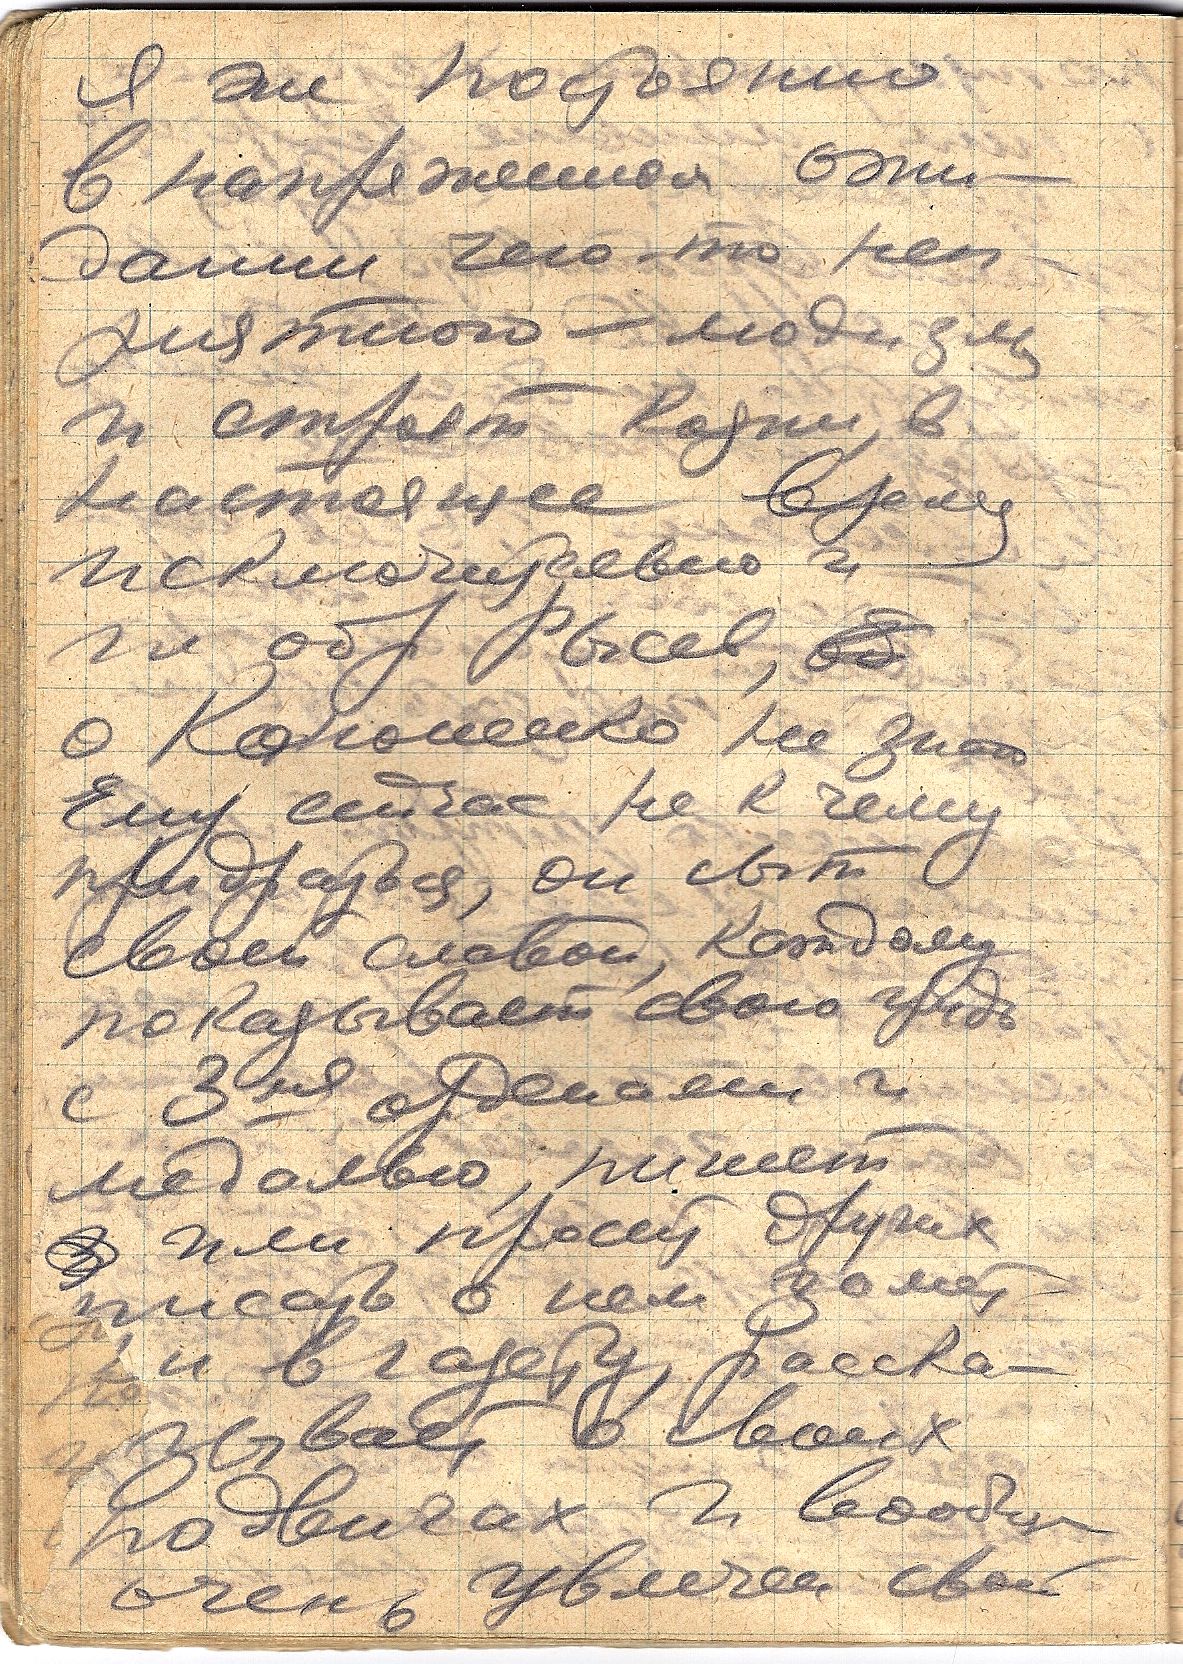 Я же постоянно
в напряженном ожи-
дании чего-то неп
риятного — люди злы
и строят козни, в
настоящее время
исключительно и
гл обр Рысев,
о Кононенко не знаю
Ему сейчас не к чему
придраться, он сыт
своей славой, каждому
показывает свою грудь
с 3мя орденами и
медалью, пишет
или просит других
писать о нем замет-
ки в газету, расска-
зывает о своих
подвигах и вообще
очень увлечен свой